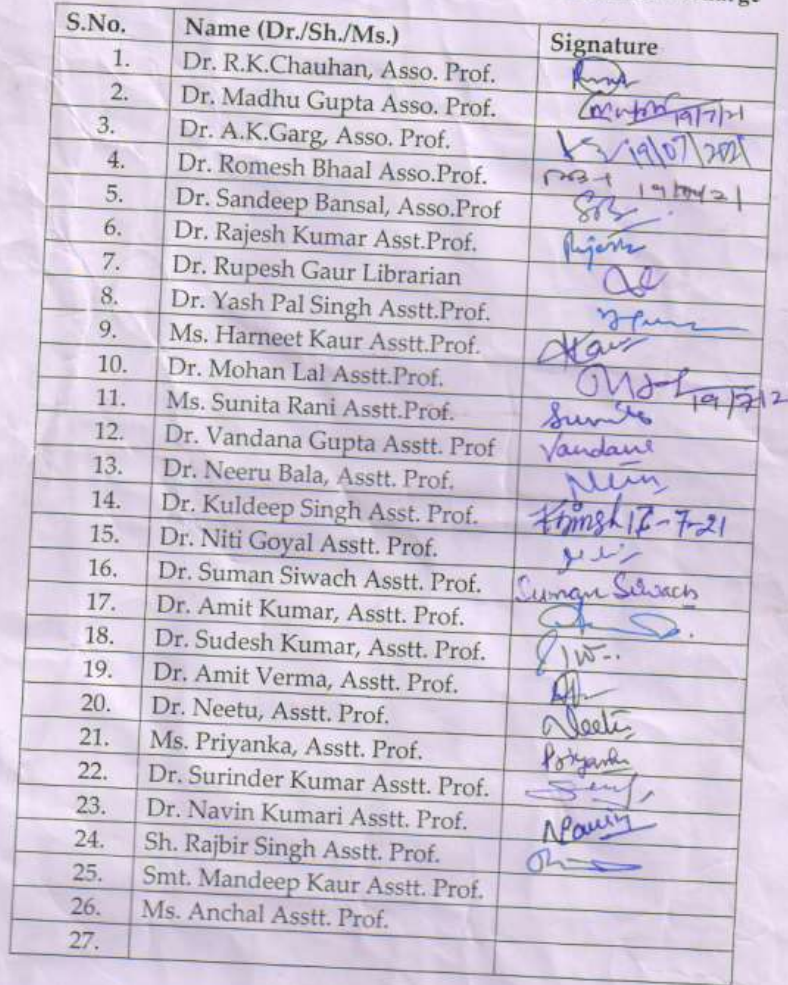 S.No. Name (Dr./Sh./Ms.) Signature
1. Dr. R.K.Chauhan, Asso. Prof.
2. Dr. Madhu Gupta Asso. Prof. 19/7/21
3. Dr. A.K.Garg, Asso. Prof. 19/07/2021
4. Dr. Romesh Bhaal Asso.Prof.
5. Dr. Sandeep Bansal, Asso.Prof
6. Dr. Rajesh Kumar Asst.Prof. Rajesh
7. Dr. Rupesh Gaur Librarian
8. Dr. Yash Pal Singh Asstt.Prof.
9. Ms. Harneet Kaur Asstt.Prof. HKaur
10. Dr. Mohan Lal Asstt.Prof. 19/7/2
11. Ms. Sunita Rani Asstt.Prof. Sunita
12. Dr. Vandana Gupta Asstt. Prof Vandana
13. Dr. Neeru Bala, Asstt. Prof.
14. Dr. Kuldeep Singh Asst. Prof.
15. Dr. Niti Goyal Asstt. Prof.
16. Dr. Suman Siwach Asstt. Prof. Suman Siwach
17. Dr. Amit Kumar, Asstt. Prof.
18. Dr. Sudesh Kumar, Asstt. Prof.
19. Dr. Amit Verma, Asstt. Prof.
20. Dr. Neetu, Asstt. Prof. Neetu
21. Ms. Priyanka, Asstt. Prof. Priyanka
22. Dr. Surinder Kumar Asstt. Prof.
23. Dr. Navin Kumari Asstt. Prof.
24. Sh. Rajbir Singh Asstt. Prof.
25. Smt. Mandeep Kaur Asstt. Prof.
26. Ms. Anchal Asstt. Prof.
27.